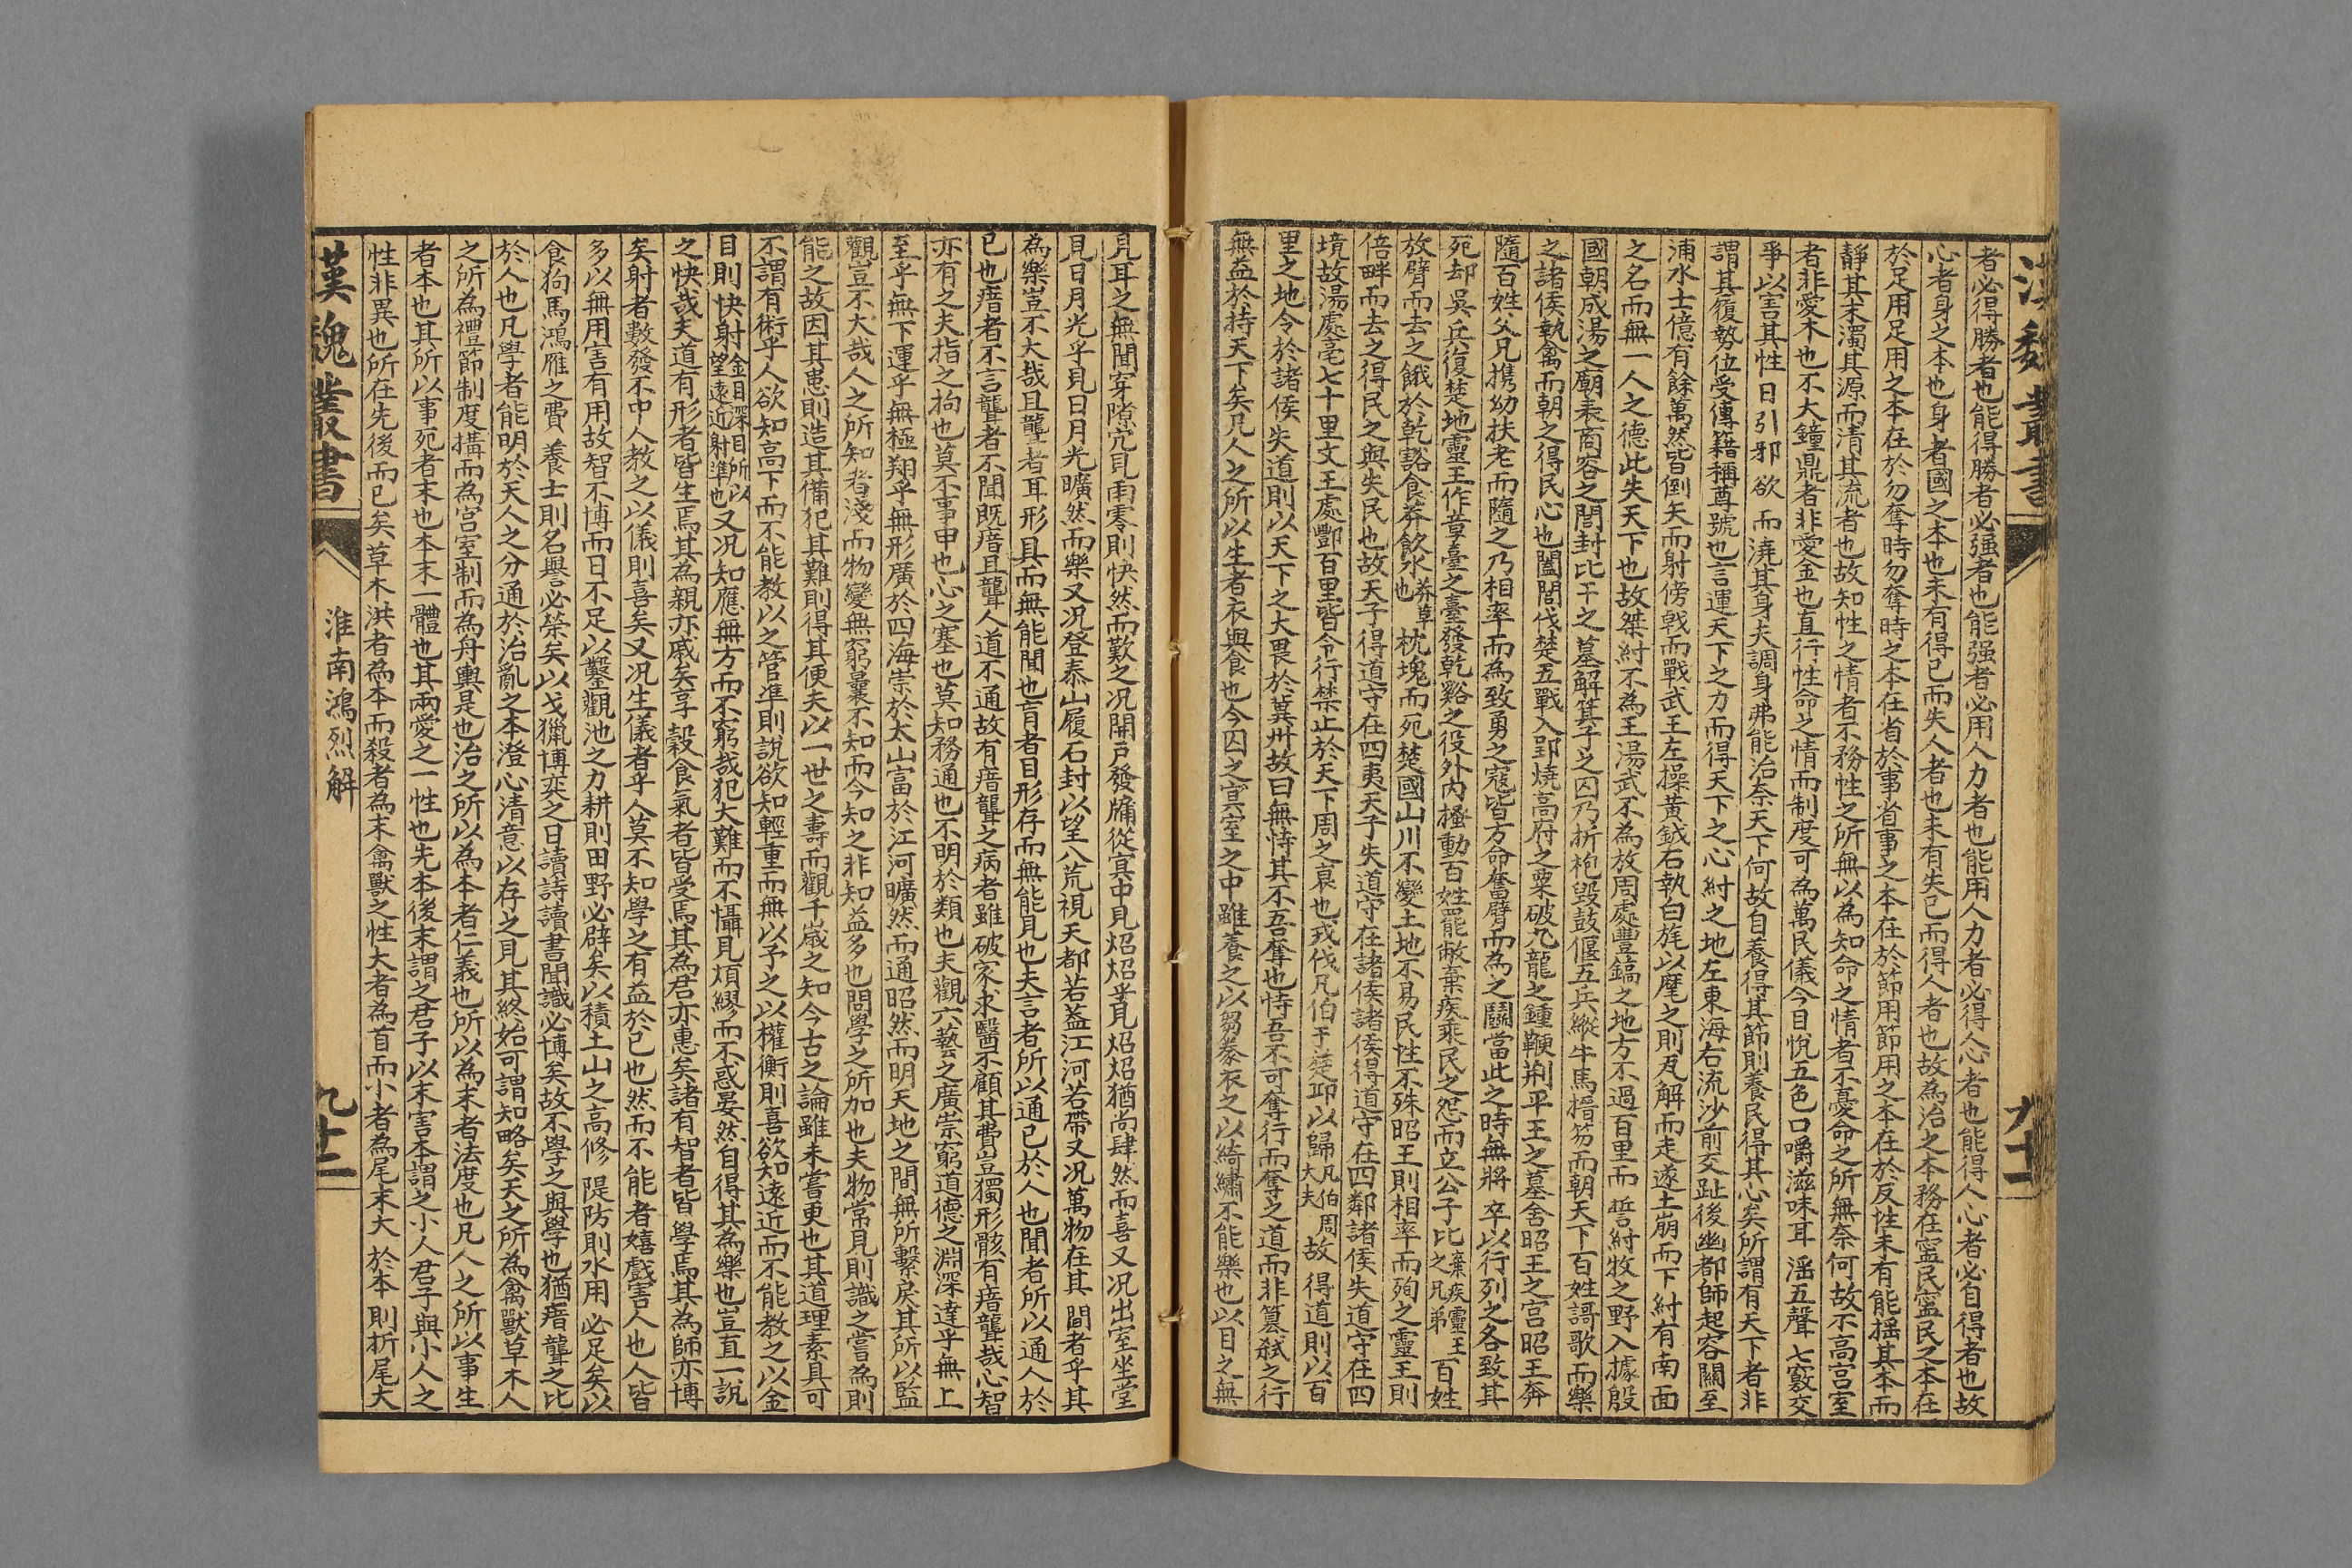 漢魏叢書
九十一
者必得勝者也能得勝者必强者也能强者必用人力者也能用人力者必得人心者也能得人心者必自得者也故
心者身之本也身者國之本也未有得己而失人者也未有失己而得人者也故為治之本務在寧民寧民之本在
於足用足用之本在於勿奪時勿奪時之本在省於事省事之本在於節用節用之本在於反性未有能揺其本而
靜其末濁其源而清其流者也故知性之情者不務性之所無以為知命之情者不憂命之所無奈何故不高宮室
者非愛木也不大鐘鼎者非愛金也直行性命之情而制度可為萬民儀今目悅五色口嚼滋味耳淫五聲七竅交
爭以害其性日引邪欲而澆其身夫調身弗能治奈天下何故自養得其節則養民得其心矣所謂有天下者非
謂其履勢位受傳籍稱尊號也言運天下之力而得天下之心紂之地左東海右流沙前交趾後幽都師起容關至
浦水士億有餘萬然皆倒矢而射傍戟而戰武王左操黃鉞右執白旄以麾之則瓦解而走遂土崩而下紂有南面
之名而無一人之德此失天下也故桀紂不為王湯武不為放周處豐鎬之地方不過百里而誓紂牧之野入據殷
國朝成湯之廟表商容之閭封比干之墓解箕子之囚乃折枹毀鼓偃五兵縱牛馬搢笏而朝天下百姓謌歌而樂
之諸侯執禽而朝之得民心也闔閭伐楚五戰入郢燒高府之粟破九龍之鍾鞭荆平王之墓舍昭王之宮昭王奔
隨百姓父兄携幼扶老而隨之乃相率而為致勇之寇皆方命奮臂而為之鬬當此之時無將卒以行列之各致其
死却吳兵復楚地靈王作章臺之臺發乾谿之役外內搔動百姓罷敝棄疾乘民之怨而立公子比棄疾靈王之兄弟百姓
放臂而去之餓於乾谿食莽飲水莽草也枕塊而死楚國山川不變土地不易民性不殊昭王則相率而殉之靈王則
倍畔而去之得民之與失民也故天子得道守在四夷天子失道守在諸侯諸侯得道守在四鄰諸侯失道守在四
境故湯處亳七十里文王處酆百里皆令行禁止於天下周之衰也戎伐凡伯于楚丘以歸凡伯周大夫故得道則以百
里之地令於諸侯失道則以天下之大畏於冀州故曰無恃其不吾奪也恃吾不可奪行而奪之道而非簒弑之行
無益於持天下矣凡人之所以生者衣與食也今囚之冥室之中雖養之以芻豢衣之以綺繡不能樂也以目之無
見耳之無聞穿隙穴見雨零則快然而歎之况開戶發牖從冥中見炤炤乎見炤炤猶尚肆然而喜又况出室坐堂
見日月光乎見日月光曠然而樂又况登泰山履石封以望八荒視天都若葢江河若帶又况萬物在其間者乎其
為樂豈不大哉且聾者耳形具而無能聞也盲者目形存而無能見也夫言者所以通己於人也聞者所以通人於
己也瘖者不言聾者不聞既瘖且聾人道不通故有瘖聾之病者雖破家求醫不顧其費豈獨形骸有瘖聾哉心智
亦有之夫指之拘也莫不事申也心之塞也莫知務通也不明於類也夫觀六藝之廣崇窮道德之淵深達乎無上
至乎無下運乎無極翔乎無形廣於四海崇於太山富於江河曠然而通昭然而明天地之間無所繫戾其所以監
觀豈不大哉人之所知者淺而物變無窮曩不知而今知之非知益多也問學之所加也夫物常見則識之嘗為則
能之故因其患則造其備犯其難則得其便夫以一世之壽而觀千歲之知今古之論雖未嘗更也其道理素具可
不謂有術乎人欲知高下而不能教以之管準則說欲知輕重而無以予之以權衡則喜欲知遠近而不能教之以金
目則快射金目深目所以望遠近射準也又况知應無方而不窮哉犯大難而不懾見煩繆而不惑晏然自得其為樂也豈直一說
之快哉夫道有形者皆生焉其為親亦戚矣享穀食氣者皆受焉其為君亦惠矣諸有智者皆學焉其為師亦博
矣射者數發不中人教之以儀則喜矣又况生儀者乎人莫不知學之有益於己也然而不能者嬉戲害人也人皆
多以無用害有用故智不博而日不足以鑿觀池之力耕則田野必辟矣以積土山之高修隄防則水用必足矣以
食狗馬鴻雁之費養士則名譽必榮矣以弋獵博奕之日讀詩讀書聞識必博矣故不學之與學也猶瘖聾之比
於人也凡學者能明於天人之分通於治亂之本澄心清意以存之見其終始可謂知略矣天之所為禽獸草木人
之所為禮節制度搆而為宮室制而為舟輿是也治之所以為本者仁義也所以為末者法度也凡人之所以事生
者本也其所以事死者末也本末一體也其兩愛之一性也先本後末謂之君子以末害本謂之小人君子與小人之
性非異也所在先後而已矣草木洪者為本而殺者為末禽獸之性大者為首而小者為尾末大於本則折尾大
漢魏叢書
淮南鴻烈解
九十二